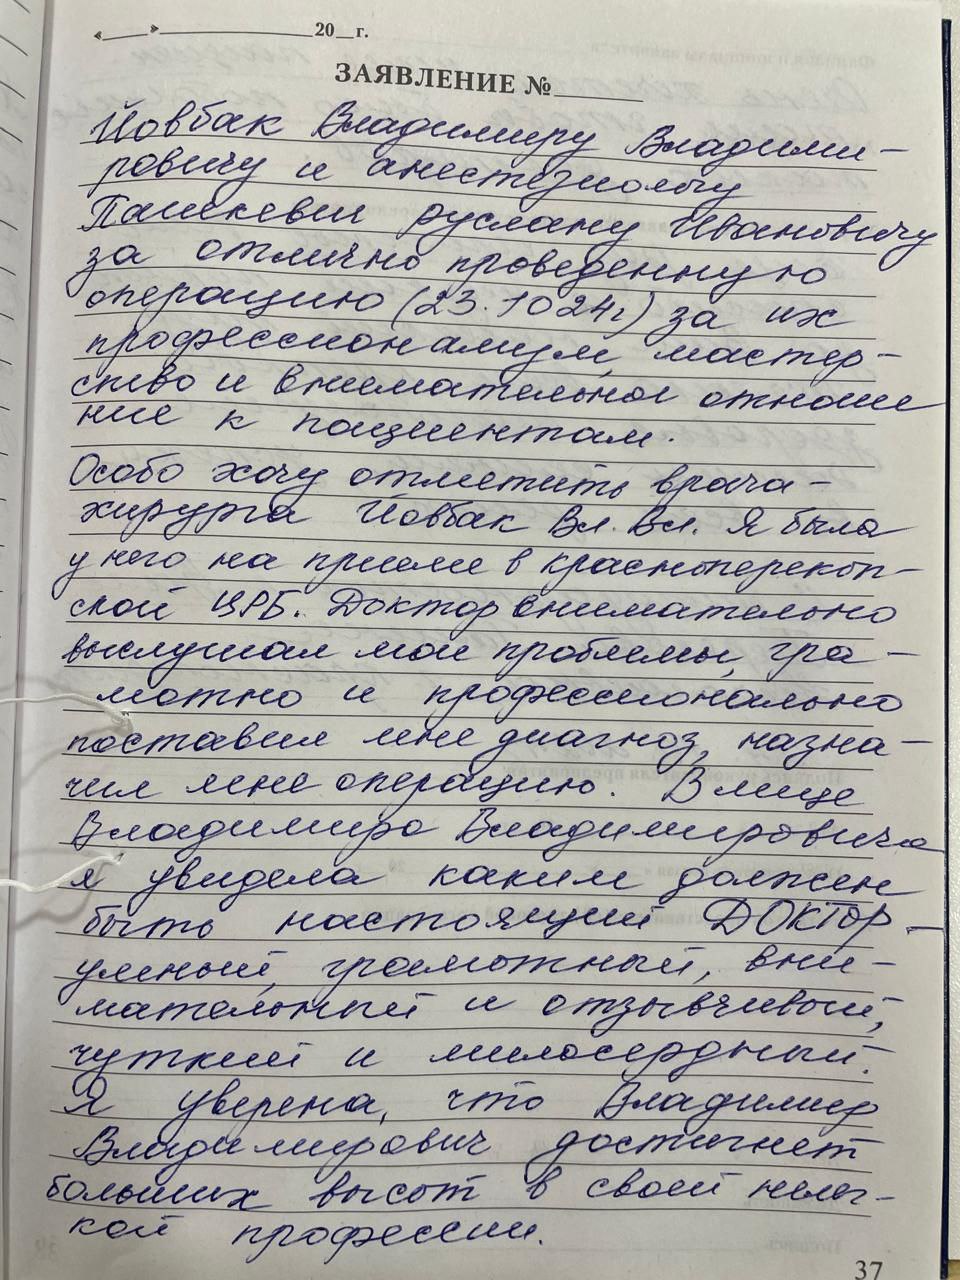 «____»______________20__г.
ЗАЯВЛЕНИЕ №________
Йовбак Владимиру Владими-
ровичу и анестезиологу
Пашкевич Руслану Ивановичу
за отлично проведенную
операцию (23.1024г) за их
профессионализм, мастер-
ство и внимательное отноше
ние к пациентам.
Особо хочу отметить врача-
хирурга Йовбак Вл. Вл. Я была
у него на приеме в красноперекоп-
ской ЦРБ. Доктор внимательно
выслушал мои проблемы, гра-
мотно и профессионально
поставил мне диагноз, назна-
чил мне операцию. В лице
Владимира Владимировича
я увидела каким должен
быть настоящий ДОКТОР-
умный, грамотный, вни-
мательный и отзывчивый,
чуткий и милосердный.
Я уверена, что Владимир
Владимирович достигнет
больших высот в своей нелег-
кой профессии.
37